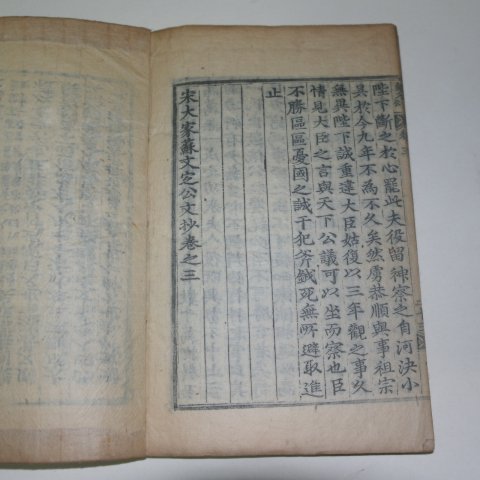 陛下斷之於心罷此夫役留神察之自河決小
吳於今九年不為不久矣然虜恭順與事祖宗
無異陛下誠重違大臣姑復以三年觀之事久
情見大臣之言與天下公議可以坐而察也臣
不勝區區憂國之誠干犯斧鉞死無所避取進
止
宋大家蘇文定公文抄卷之三